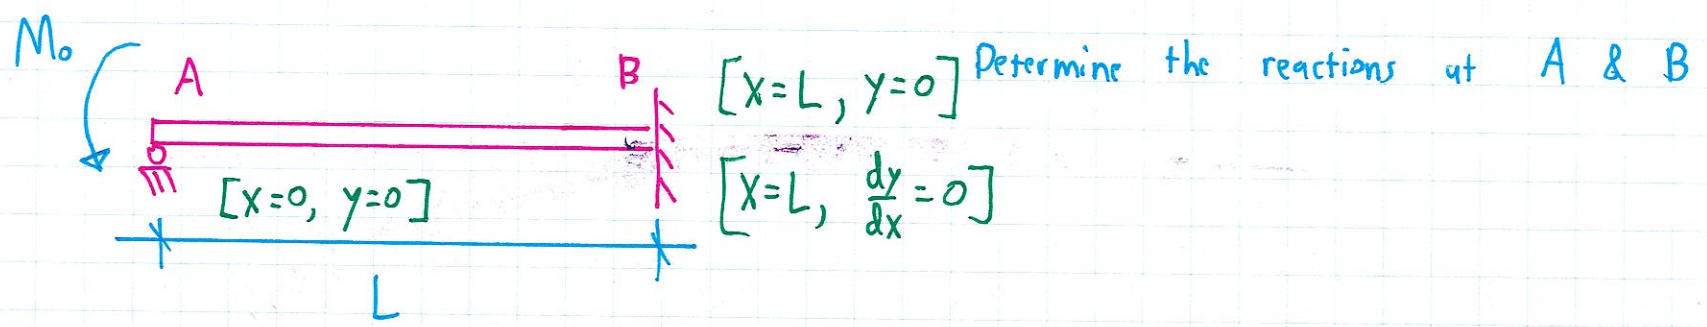 M₀
A
B
[x=L, y=0]
Determine the reactions at A & B
[x=0, y=0]
[x=L, dy/dx=0]
L